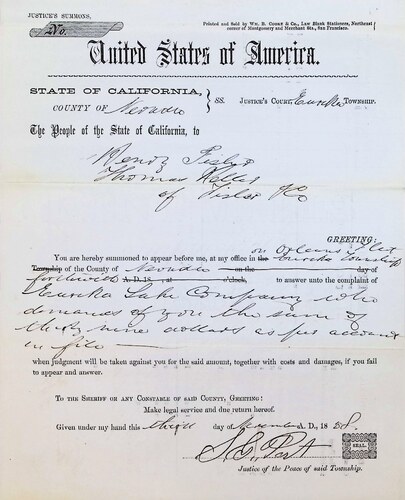 JUSTICE'S SUMMONS,
No.
Printed and Sold by WM. B. COOKE & CO., Law Blank Stationers, Northeast
corner of Montgomery and Merchant Sts., San Francisco.
United States of America.
STATE OF CALIFORNIA,
COUNTY OF Nevada } SS. JUSTICE'S COURT, Eureka TOWNSHIP.
The People of the State of California, to
Henry Fisher
Thomas
of Fisher & Co
GREETING:
on Orleans Flat
You are hereby summoned to appear before me, at my office in the Eureka Township
Township of the County of Nevada on the day of
forthwith A.D. 18 , at o'clock, to answer unto the complaint of
Eureka Lake Company who
demands of you the sum of
thirty nine dollars as per account
on file
when judgment will be taken against you for the said amount, together with costs and damages, if you fail
to appear and answer.
TO THE SHERIFF OR ANY CONSTABLE OF SAID COUNTY, GREETING:
Make legal service and due return hereof.
Given under my hand this third day of A. D., 1858.
S. E.
SEAL.
Justice of the Peace of said Township.